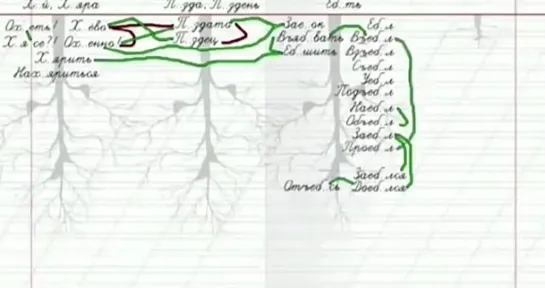 Х.й, Х.яра П.зда, П.здень Еб.ть
Ох.еть! Х.ево П.здато Зае.ок Еб.л
Х.я се?! Ох.енно! П.здец Въяб.вать Взеб.л
Х.ярить Еб.шить Взъеб.л
Нах.яриться Съеб.л
Уеб.л
Подъеб.л
Наеб.л
Объеб.л
Заеб.л
Проеб.л
Заеб.лся
Отъеб.сь Доеб.лся